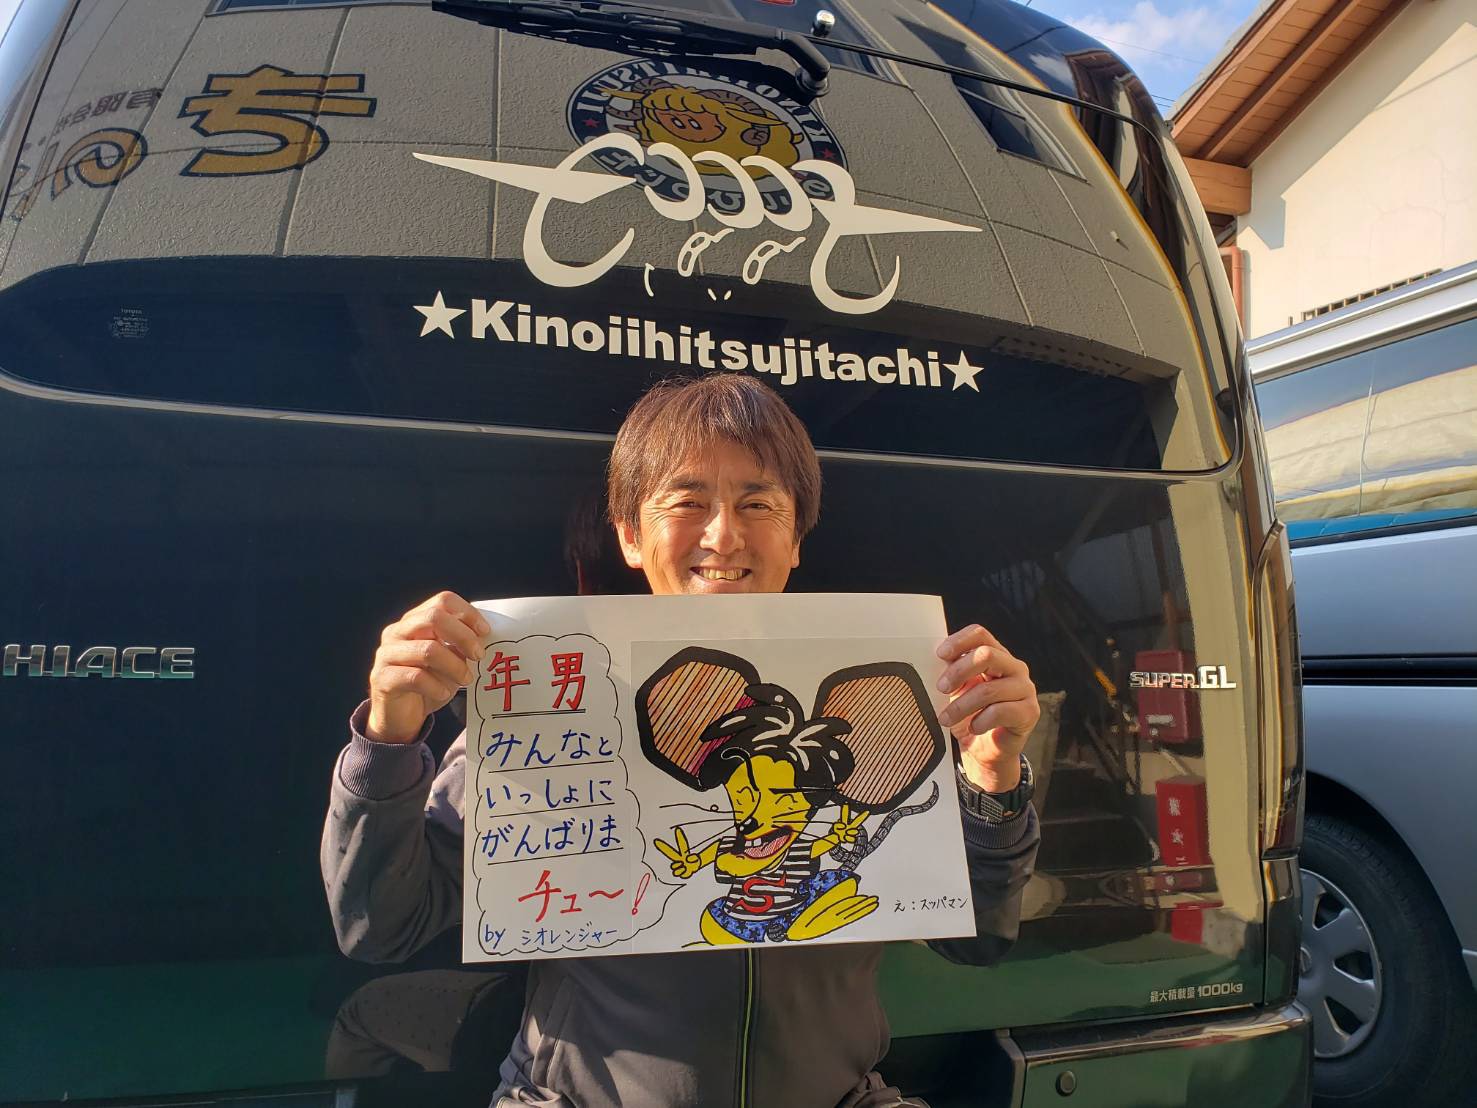 ★Kinoiihitsujitachi★
HIACE
SUPER GL
年男
みんなと
いっしょに
がんばりま
チュ～！
by シオレンジャー
S
え：スッパマン
最大積載量1000kg